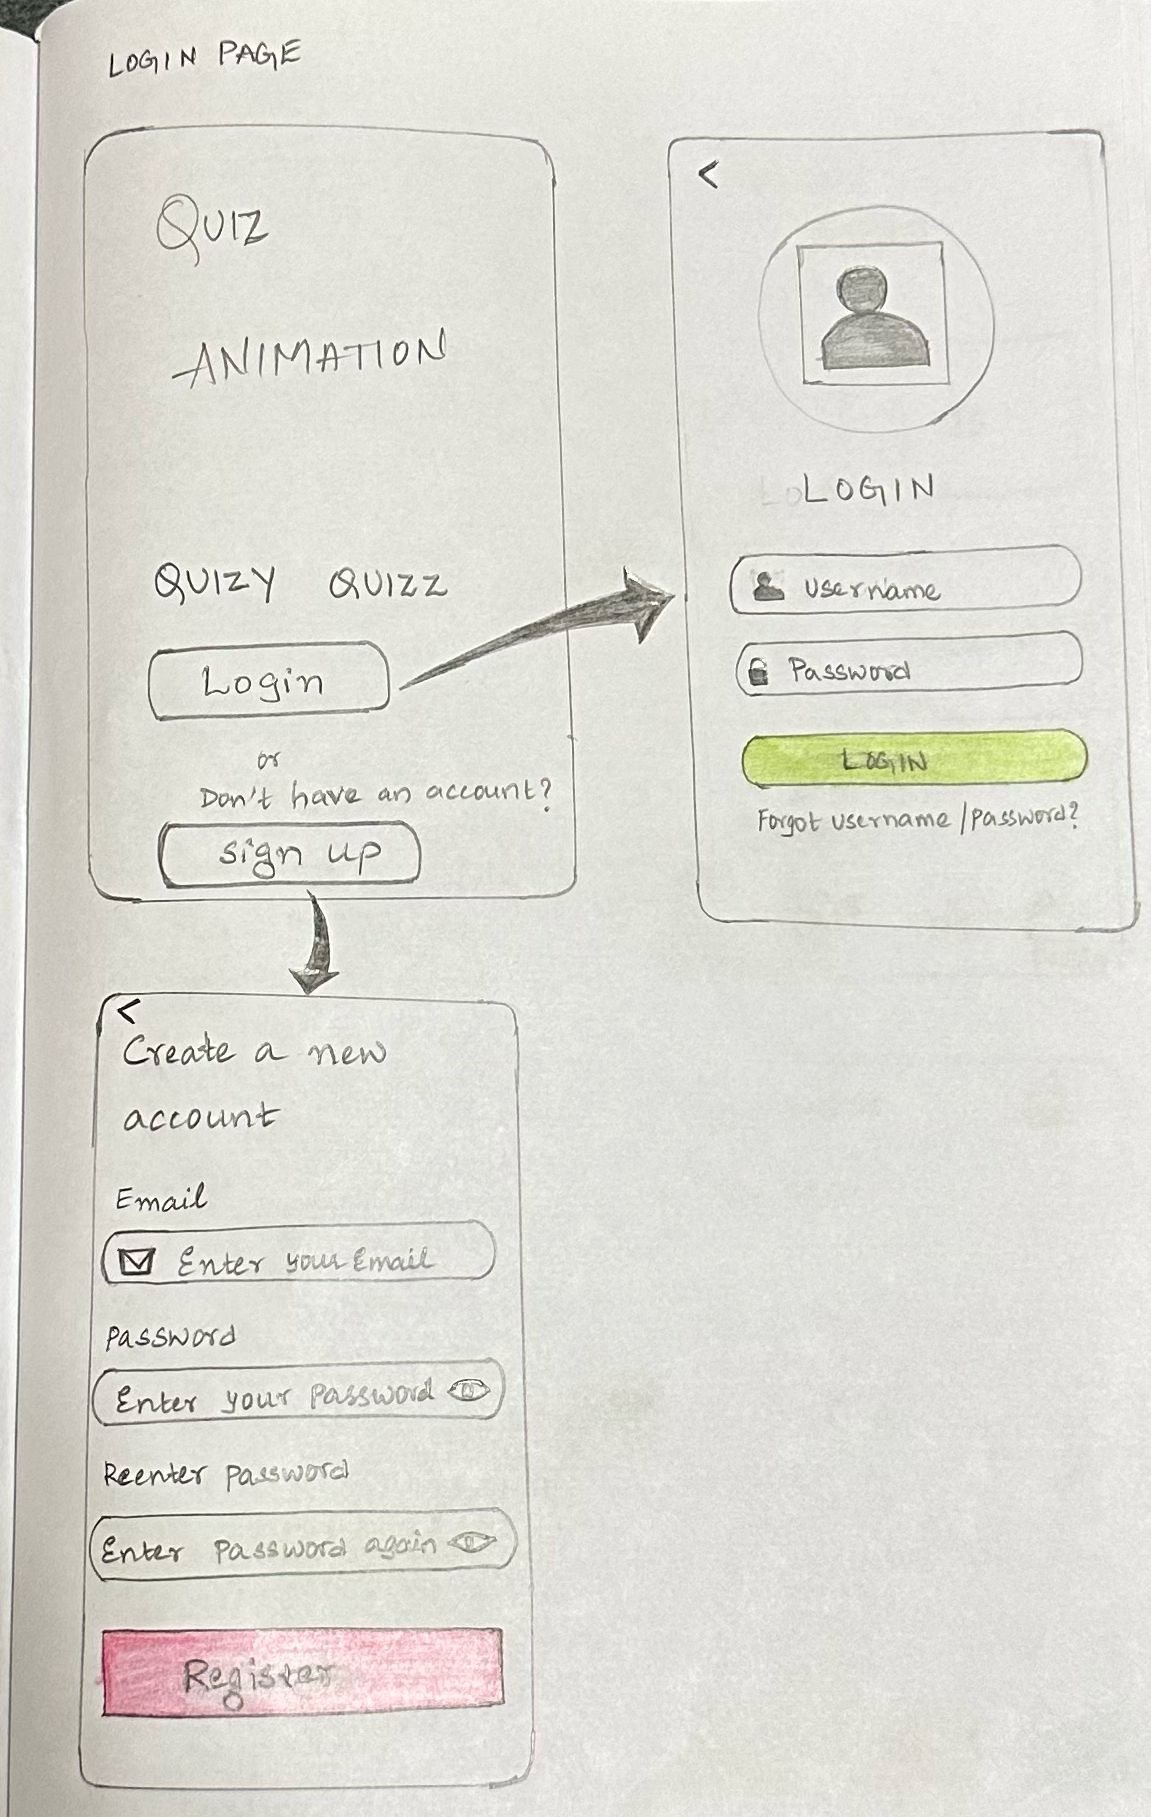 LOGIN PAGE
QUIZ
ANIMATION
QUIZY QUIZZ
Login
or
Don't have an account?
sign up
<
LOGIN
Username
Password
LOGIN
Forgot username / Password?
<
Create a new
account
Email
Enter your Email
Password
Enter your Password
Reenter password
Enter password again
Register